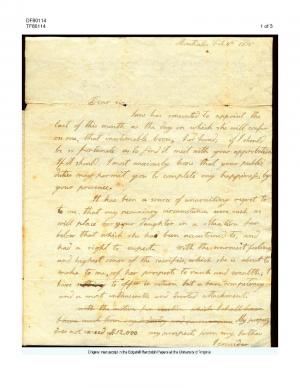 DF80114
TF80114
1 of 3
Dear sir,
Jane has consented to appoint the
last of this month as the day on which she will confer
on me, that invaluable boon, her hand; if I should
be so fortunate as to find it meet with your approbation.
If it should. I most anxiously hope that your public
duties may permit you to complete my happiness, by
your presence.
It has been a source of unavailing regret to
to me, that my pecuniary circumstances were such as
will place your daughter in a situation far
below that which she has been accustomed to, and
had a right to expect. with the warmest feeling
and highest sense of the sacrifice, which she is about
to make to me, of her prospects to rank and wealth, I
have nothing to offer in return but a bare competency
and a most unbounded and devoted attachment.
My property
does not exceed $12,000 my prospects from my father
I consider
Original manuscript in the Edgehill-Randolph Papers at the University of Virginia